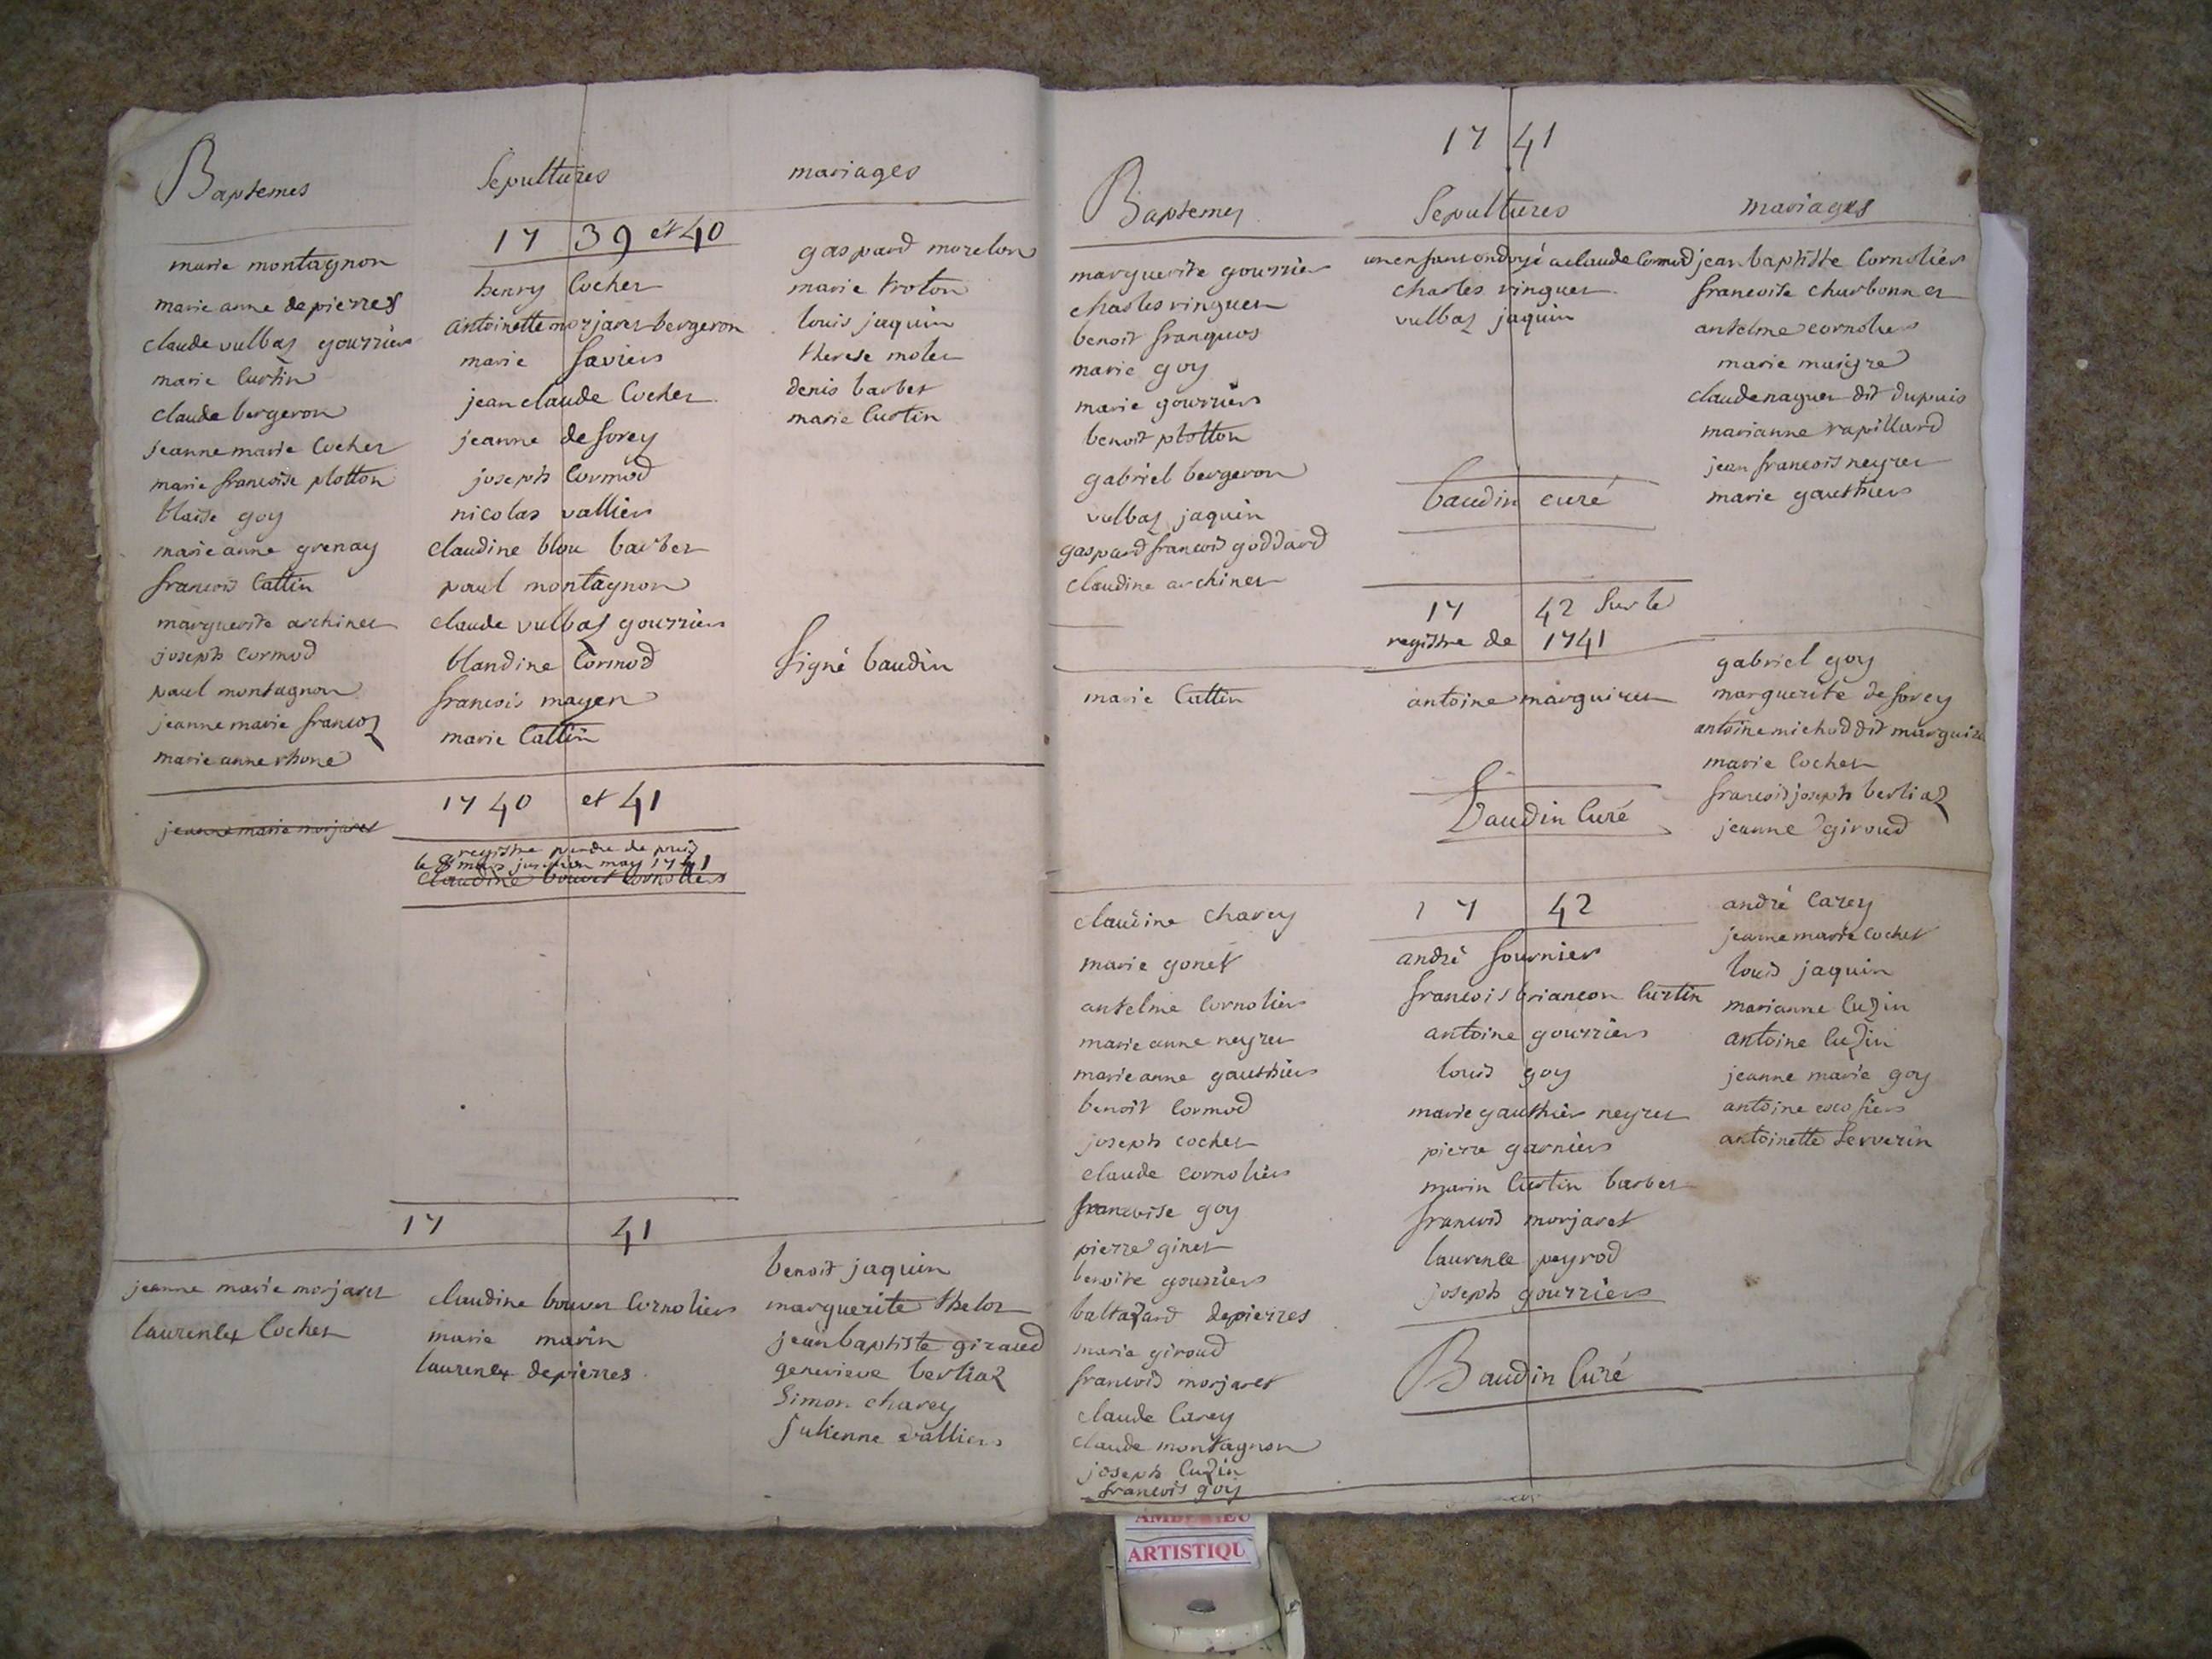 Baptemes
Sepultures
mariages
17 39 et 40
marie montagnon
marie anne depierres
claude vulbas gourriers
marie Curtin
claude bergeron
jeanne marie Cochet
marie francoise plotton
blaise goy
marie anne grenay
francois Cattin
marguerite archinet
joseph Cormod
paul montagnon
jeanne marie francoz
marie anne rhone
henry Cochet
antoinette morjaret bergeron
marie saviers
jean claude Cochet
jeanne de forey
joseph Cormod
nicolas valliers
claudine blou barbet
paul montagnon
claude vulbas gourriers
blandine Cormod
francois mayen
marie Cattin
gaspard morelon
marie troton
louis jaquin
therese molet
denis barbet
marie Curtin
signé baudin
1740 et 41
jeanne marie morjaret
registre perdu de puis
le 8 mars jusqu'en may 1741
claudine bouvet Cornoliers
17 41
jeanne marie morjaret
laurence Cochet
claudine bouvet Cornoliers
marie marin
laurence depierres
benoit jaquin
marguerite thelot
jean baptiste giraud
genevieve berliaz
Simon charey
Julienne valliers
17 41
Baptemes
Sepultures
mariages
marguerite gourrier
charles vinguet
benoit franquos
marie goy
marie gourriers
benoit plotton
gabriel bergeron
vulbas jaquin
gaspard francois goddard
claudine archinet
un enfant ondoyé a claude Cormod
charles vinguet
vulbas jaquin
baudin curé
jean baptiste Cornoliers
francoise charbonnet
antelme cornoliers
marie maigre
claude naguet dit dupuis
marianne rapillard
jean francois neyret
marie gauthiers
17 42 sur le
registre de 1741
marie Cattin
antoine marguiret
Baudin Curé
gabriel goy
marguerite de forey
antoine michod dit marguire
marie Cochet
francois joseph berliaz
jeanne giroud
17 42
claudine charey
marie gonet
antelme Cornoliers
marie anne neyret
marie anne gauthiers
benoit Cormod
joseph cochet
claude cornoliers
francoise goy
pierre ginet
benoite gourriers
baltazard depierres
marie giroud
francois morjaret
claude Carey
claude montagnon
joseph Cuzin
francois goy
andré fournier
francois briancon Curtin
antoine gourriers
louis goy
marie gauthier neyret
pierre garniers
marin Curtin barbet
francois morjaret
laurence peyrod
joseph gourriers
Baudin Curé
andré Carey
jeanne marie cochet
louis jaquin
marianne Cuzin
antoine Cuzin
jeanne marie goy
antoine escofiers
antoinette Serverin
ARTISTIQU